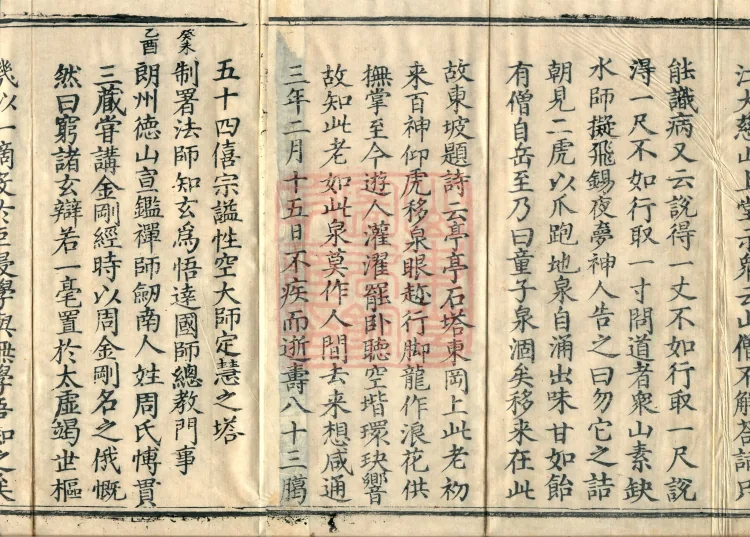 江大慈山上堂示衆云山僧不解荅話只
能識病又云說得一丈不如行取一尺說
得一尺不如行取一寸問道者衆山素缺
水師擬飛錫夜夢神人告之曰勿它之詰
朝見二虎以爪跑地泉自涌出味甘如飴
有僧自岳至乃曰童子泉涸矣移来在此
故東坡題詩云亭亭石塔東岡上此老初
来百神仰虎移泉眼趂行脚龍作浪花供
撫掌至今遊人灌濯罷卧聽空堦環玦響
故知此老如此泉莫作人間去来想咸通
三年二月十五日不疾而逝壽八十三臈
五十四僖宗謚性空大師定慧之塔
癸未
制署法師知玄爲悟達國師總教門事
乙酉
朗州德山宣鑑禪師劒南人姓周氏愽貫
三藏甞講金剛經時以周金剛名之俄慨
然曰窮諸玄辯若一毫置於太虛竭世樞
以一滴投於巨浸學與無學吾知之矣